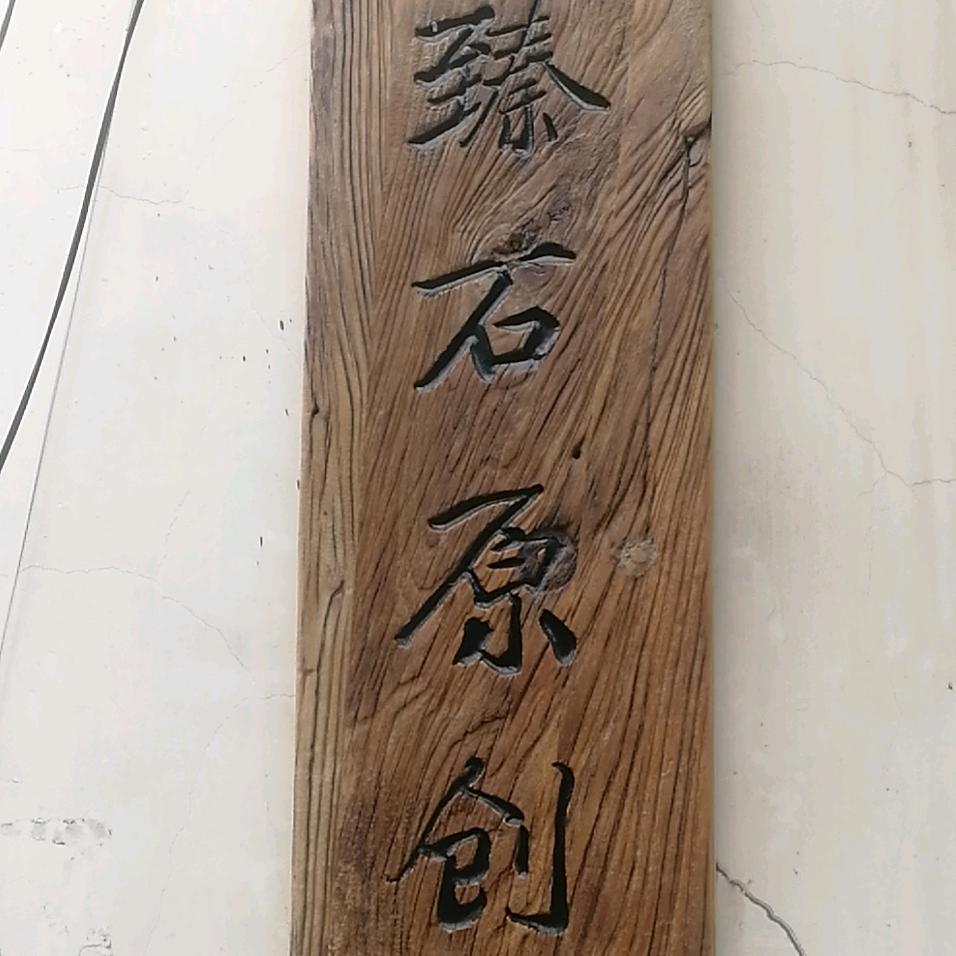 臻石原创